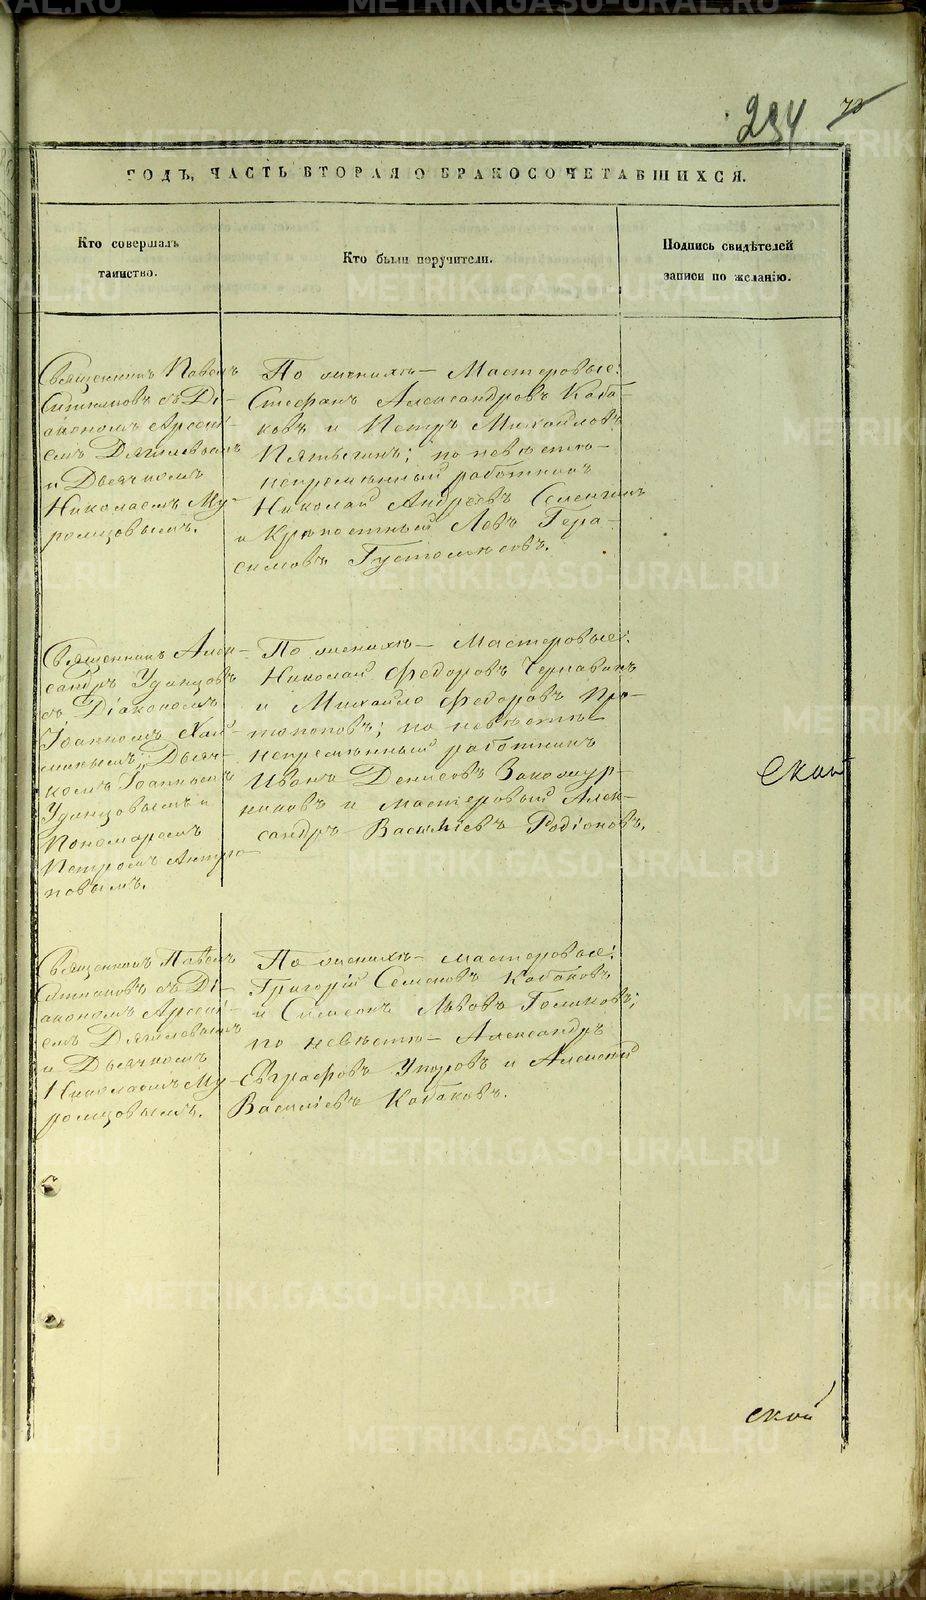 234 73
ГОДЪ, ЧАСТЬ ВТОРАЯ О БРАКОСОЧЕТАВШИХСЯ.
Кто совершалъ
таинство.
Кто были поручители.
Подпись свидѣтелей
записи по желанію.
Священникъ Павелъ
съ Ді-
акономъ Арсені-
емъ Дягилевымъ
и Дьячкомъ
Николаемъ Му-
ромцовымъ.
По женихѣ – Мастеровые:
Стефанъ Александровъ Каба-
ковъ и Петръ Михайловъ
по невѣстѣ –
непремѣнный работникъ
Николай Андреевъ
и Крѣпостный Левъ Гера-
симовъ Густомѣсовъ.
Священникъ Алек-
сандръ Удинцовъ
съ Діакономъ
Іоанномъ
Дьяч-
комъ Іоанномъ
Удинцовымъ и
Пономаремъ
Петромъ Антро-
повымъ.
По женихѣ – Мастеровые:
Николай Федоровъ Чернавинъ
и Михайло Федоровъ Про-
топоповъ; по невѣстѣ
непремѣнный работникъ
Иванъ Денисовъ Закожур-
никовъ и мастеровый Алек-
сандръ Васильевъ Родіоновъ.
Священникъ Павелъ
съ Ді-
акономъ Арсені-
емъ Дягилевымъ
и Дьячкомъ
Николаемъ Му-
ромцовымъ.
По женихѣ – мастеровые:
Григорій Семеновъ Кабаковъ
и Симеонъ Львовъ Голиковъ;
по невѣстѣ – Александръ
Евграфовъ Упоровъ и Алексѣй
Васильевъ Кабаковъ.
Скай
ской
METRIKI.GASO-URAL.RU